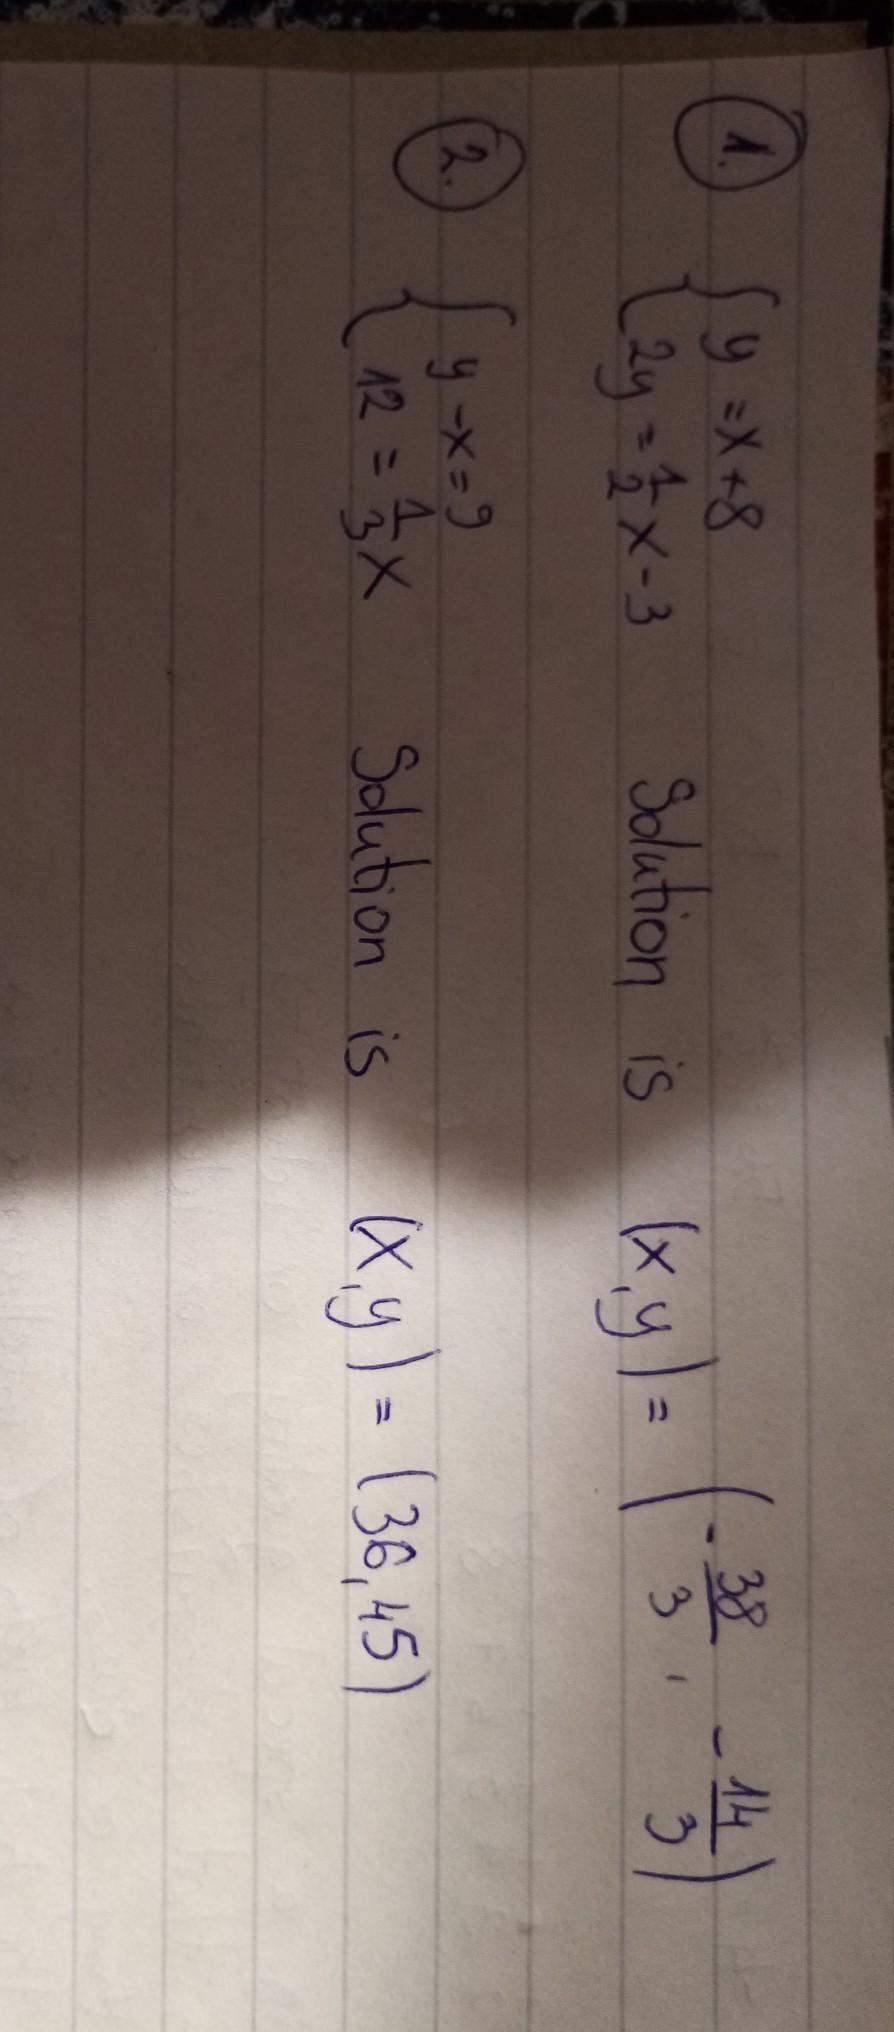 1. { y = x + 8
2y = 1/2 x - 3 Solution is (x, y) = (-38/3, -14/3)
2. { y - x = 9
12 = 1/3 x Solution is (x, y) = (36, 45)